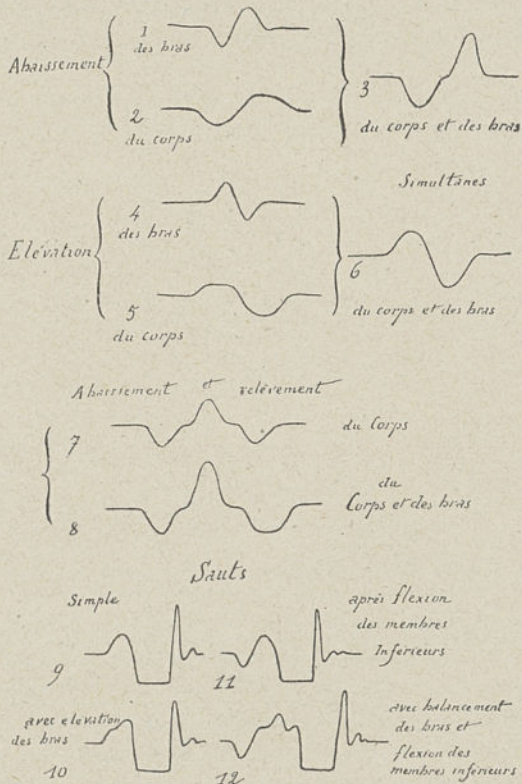 1
des bras
Abaissement
2
du corps
3
du corps et des bras
Simultanés
4
des bras
Elévation
5
du corps
6
du corps et des bras
Abaissement et relèvement
7
du Corps
8
du
Corps et des bras
Sauts
Simple
9
après flexion
des membres
Inférieurs
11
avec elevation
des bras
10
avec balancement
des bras et
flexion des
membres inférieurs
12